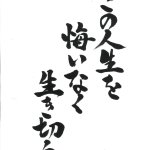 この人生を
悔いなく
生き切る